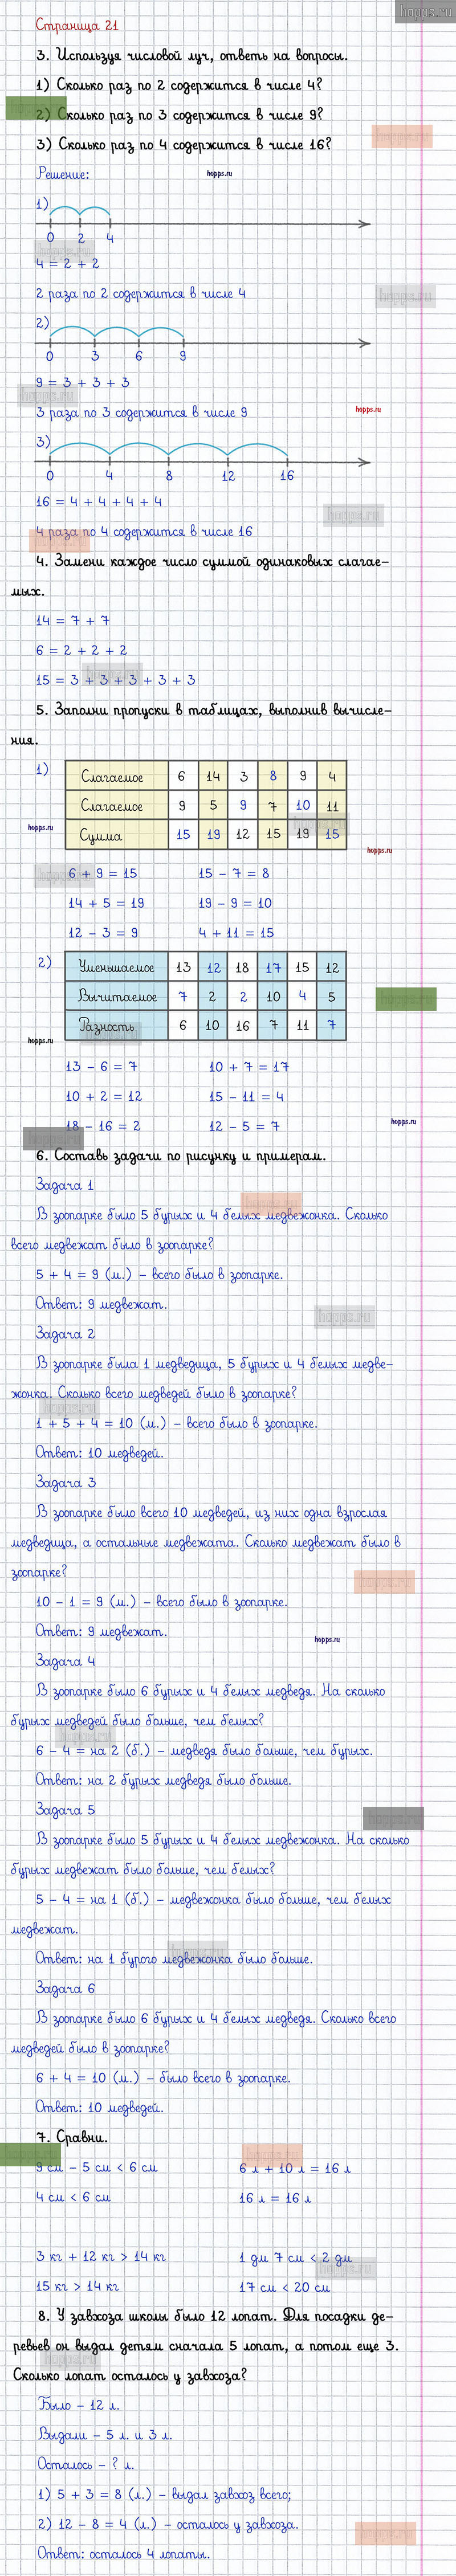 hopps.ru
Страница 21
3. Используя числовой луч, ответь на вопросы.
1) Сколько раз по 2 содержится в числе 4?
2) Сколько раз по 3 содержится в числе 9?
3) Сколько раз по 4 содержится в числе 16?
Решение:
hopps.ru
1)
0 2 4
4 = 2 + 2
2 раза по 2 содержится в числе 4
2)
0 3 6 9
9 = 3 + 3 + 3
3 раза по 3 содержится в числе 9
hopps.ru
3)
0 4 8 12 16
16 = 4 + 4 + 4 + 4
4 раза по 4 содержится в числе 16
4. Замени каждое число суммой одинаковых слагае-
мых.
14 = 7 + 7
6 = 2 + 2 + 2
15 = 3 + 3 + 3 + 3 + 3
5. Заполни пропуски в таблицах, выполнив вычисле-
ния.
1)
Слагаемое 6 14 3 8 9 4
Слагаемое 9 5 9 7 10 11
Сумма 15 19 12 15 19 15
hopps.ru
hopps.ru
6 + 9 = 15 15 - 7 = 8
14 + 5 = 19 19 - 9 = 10
12 - 3 = 9 4 + 11 = 15
2)
Уменьшаемое 13 12 18 17 15 12
Вычитаемое 7 2 2 10 4 5
Разность 6 10 16 7 11 7
hopps.ru
13 - 6 = 7 10 + 7 = 17
10 + 2 = 12 15 - 11 = 4
18 - 16 = 2 12 - 5 = 7
hopps.ru
6. Составь задачи по рисунку и примерам.
Задача 1
В зоопарке было 5 бурых и 4 белых медвежонка. Сколько
всего медвежат было в зоопарке?
5 + 4 = 9 (м.) - всего было в зоопарке.
Ответ: 9 медвежат.
Задача 2
В зоопарке была 1 медведица, 5 бурых и 4 белых медве-
жонка. Сколько всего медведей было в зоопарке?
1 + 5 + 4 = 10 (м.) - всего было в зоопарке.
Ответ: 10 медведей.
Задача 3
В зоопарке было всего 10 медведей, из них одна взрослая
медведица, а остальные медвежата. Сколько медвежат было в
зоопарке?
10 - 1 = 9 (м.) - всего было в зоопарке.
Ответ: 9 медвежат.
hopps.ru
Задача 4
В зоопарке было 6 бурых и 4 белых медведя. На сколько
бурых медведей было больше, чем белых?
6 - 4 = на 2 (б.) - медведя было больше, чем бурых.
Ответ: на 2 бурых медведя было больше.
Задача 5
В зоопарке было 5 бурых и 4 белых медвежонка. На сколько
бурых медвежат было больше, чем белых?
5 - 4 = на 1 (б.) - медвежонка было больше, чем белых
медвежат.
Ответ: на 1 бурого медвежонка было больше.
Задача 6
В зоопарке было 6 бурых и 4 белых медведя. Сколько всего
медведей было в зоопарке?
6 + 4 = 10 (м.) - было всего в зоопарке.
Ответ: 10 медведей.
7. Сравни.
9 см - 5 см < 6 см 6 л + 10 л = 16 л
4 см < 6 см 16 л = 16 л
3 кг + 12 кг > 14 кг 1 дм 7 см < 2 дм
15 кг > 14 кг 17 см < 20 см
8. У завхоза школы было 12 лопат. Для посадки де-
ревьев он выдал детям сначала 5 лопат, а потом еще 3.
Сколько лопат осталось у завхоза?
Было - 12 л.
Выдали - 5 л. и 3 л.
Осталось - ? л.
1) 5 + 3 = 8 (л.) - выдал завхоз всего;
2) 12 - 8 = 4 (л.) - осталось у завхоза.
Ответ: осталось 4 лопаты.